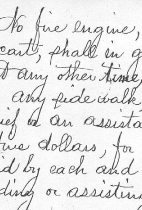 No fire engine,
cart, shall in g
t any other time,
any side walk,
ief or an assista
five dollars, for
d by each and
ding or assisting